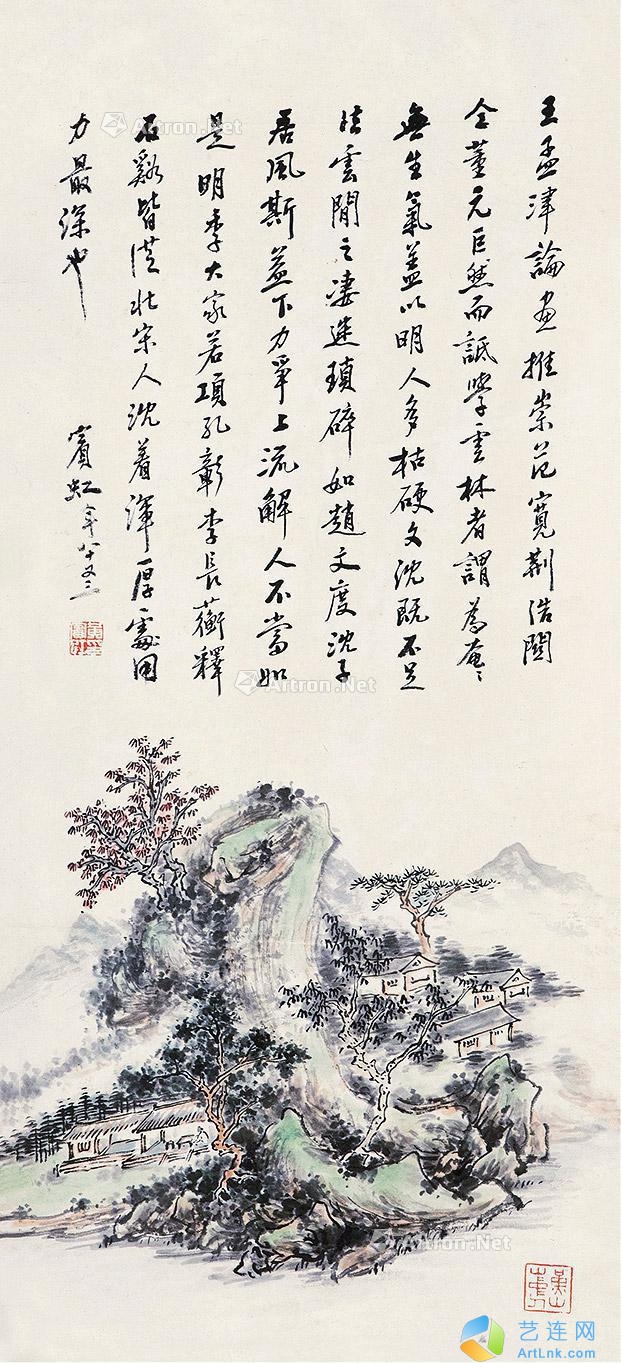 王孟津論畫推崇范寬荆浩關
仝董元巨然而詆學雲林者謂為奄〻
無生氣蓋以明人多枯硬文沈既不足
法雲間之淒迷瑣碎如趙文度沈子
居風斯益下力爭上流解人不當如
是明季大家若項孔彰李長蘅釋
石谿皆從北宋人沈着渾厚處用
力最深也
賓虹年八十又三
Artron.Net
Artron.Net
Artron.Net
Artron.Net
Artron.Net
Artron.Net
艺连网
ArtLnk.com